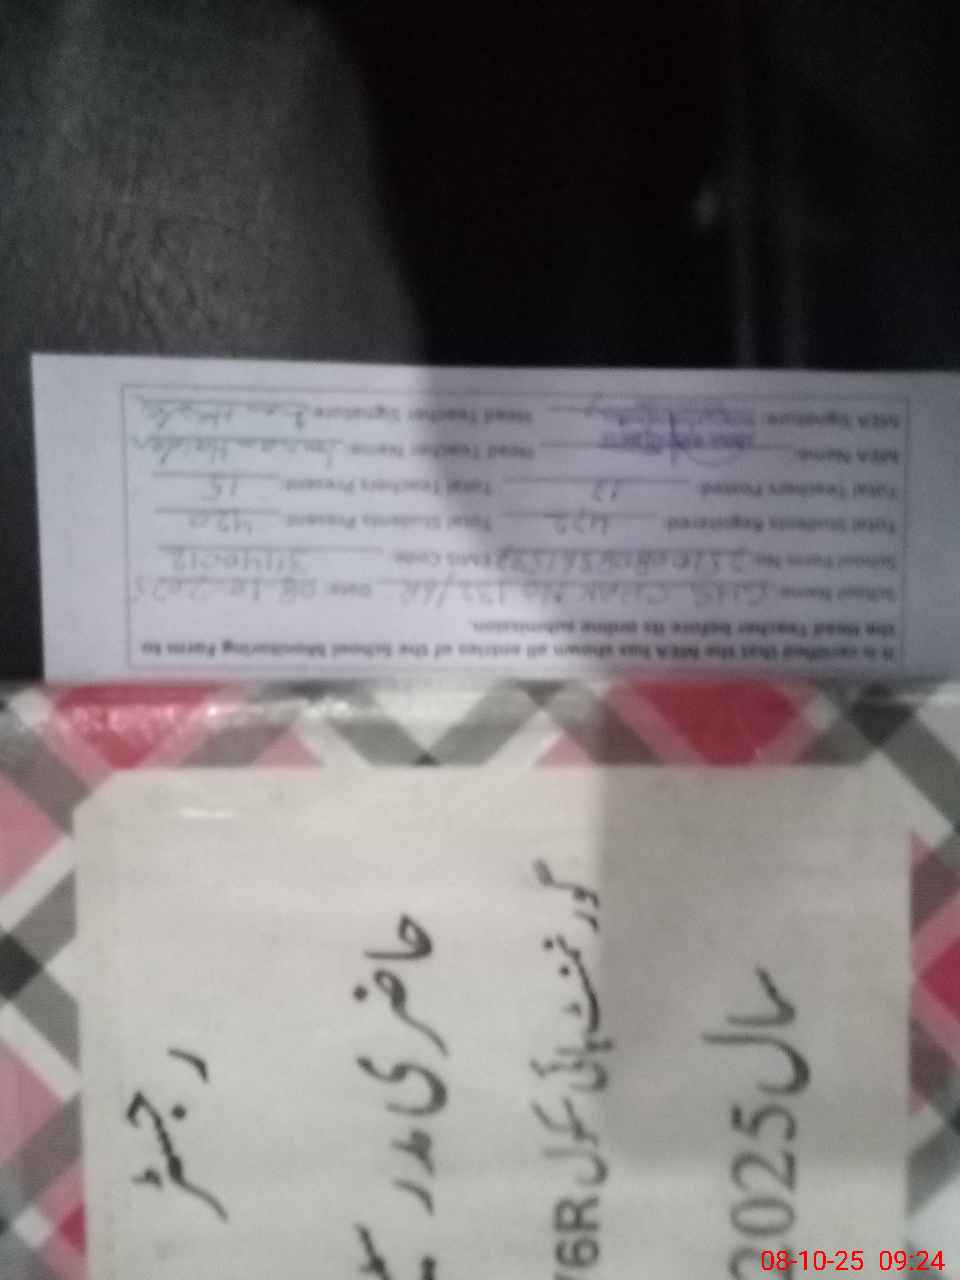 It is certified that the MEA has shown all entries of the School Monitoring Form to
the Head Teacher before its online submission.
School Name: GHS CHAK NO 132/6R Date: 08.10.2025
School Form No: EMIS Code: 31140012
Total Students Registered: 472 Total Students Present: 420
Total Teachers Posted: 17 Total Teachers Present: 15
MEA Name: Head Teacher Name:
MEA Signature: Head Teacher Signature:
رجسٹر
حاضری مدر
گورنمنٹ ہائی سکول
/6R
سال 2025
08-10-25 09:24